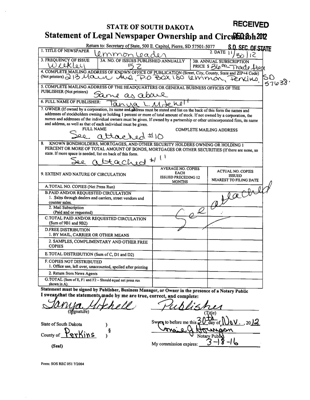 RECEIVED
STATE OF SOUTH DAKOTA
Statement of Legal Newspaper Ownership and Circ
Return to: Secretary of State, 500 E. Capitol, Pierre, SD 57501-5077
S.D. SEC. OF STATE
1. TITLE OF NEWSPAPER
Lemmon Leader
2. DATE 11/30/12
3. FREQUENCY OF ISSUE
Weekly
3A. NO. OF ISSUES PUBLISHED ANNUALLY
52
3B. ANNUAL SUBSCRIPTION
PRICE $ 36
4. COMPLETE MAILING ADDRESS OF KNOWN OFFICE OF PUBLICATION (Street, City, County, State and ZIP+4 Code)
(Not printers) 213 Main Ave, PO Box 180 Lemmon, Perkins SD
57638
5. COMPLETE MAILING ADDRESS OF THE HEADQUARTERS OR GENERAL BUSINESS OFFICES OF THE
PUBLISHER (Not printers)
Same as above
6. FULL NAME OF PUBLISHER:
Tanya L. Mitchell
7. OWNER (If owned by a corporation, its name and address must be stated and list on the back of this form the names and
addresses of stockholders owning or holding 1 percent or more of total amount of stock. If not owned by a corporation, the
names and addresses of the individual owners must be given. If owned by a partnership or other unincorporated firm, its name
and address, as well as that of each individual must be given.
FULL NAME
COMPLETE MAILING ADDRESS
See attached #10
8. KNOWN BONDHOLDERS, MORTGAGES, AND OTHER SECURITY HOLDERS OWNING OR HOLDING 1
PERCENT OR MORE OF TOTAL AMOUNT OF BONDS, MORTGAGES OR OTHER SECURITIES (If there are none, so
state. If more space is needed, list on back of this form.
See attached #11
9. EXTENT AND NATURE OF CIRCULATION
AVERAGE NO. COPIES
EACH
ISSUED PRECEDING 12
MONTHS
ACTUAL NO. COPIES
ISSUED
NEAREST TO FILING DATE
A. TOTAL NO. COPIES (Net Press Run)
See attached
B. PAID AND/OR REQUESTED CIRCULATION
1. Sales through dealers and carriers, street vendors and
counter sales.
2. Mail Subscription
(Paid and or requested)
C. TOTAL PAID AND/OR REQUESTED CIRCULATION
(Sum of 9B1 and 9B2)
D. FREE DISTRIBUTION
1. BY MAIL, CARRIER OR OTHER MEANS
2. SAMPLES, COMPLIMENTARY AND OTHER FREE
COPIES
E. TOTAL DISTRIBUTION (Sum of C, D1 and D2)
F. COPIES NOT DISTRIBUTED
1. Office use, left over, unaccounted, spoiled after printing
2. Return from News Agents
G. TOTAL (Sum of E, F1 and F2 - Should equal net press run
shown in A)
Statement must be signed by Publisher, Business Manager, or Owner in the presence of a Notary Public
I swear that the statements made by me are true, correct, and complete:
Tanya Mitchell
Publisher
(Signature)
(Title)
State of South Dakota )
§
County of Perkins )
Sworn to before me this 30th day of Nov. 2012
Notary Public
(Seal)
My commission expires: 3-18-16
Form: SOS REC 051 7/2004